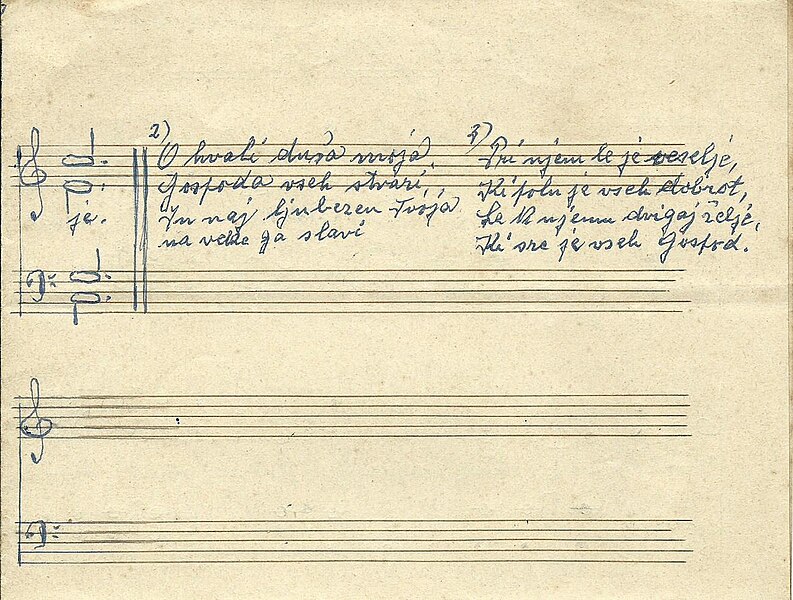 je.
2)
O hvali duša moja,
Gospoda vseh stvari,
In naj ljubezen Tvoja
na veke ga slavi
3)
Pri njem le je veselje,
Ki poln je vseh dobrot,
Le k njemu dvigaj želje,
Ki src je vseh Gospod.